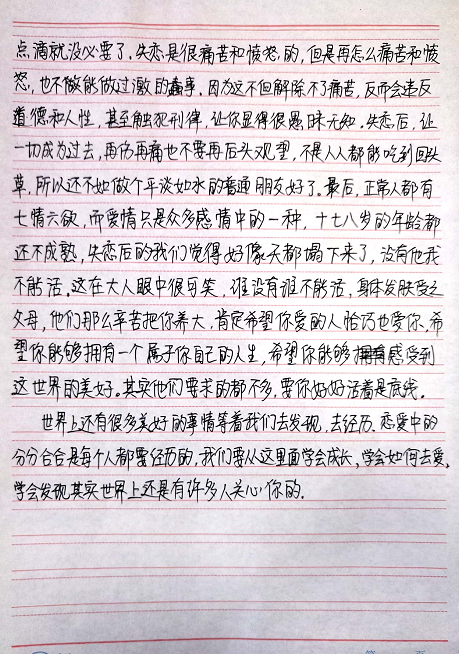 点滴就没必要了。失恋是很痛苦和愤怒的，但是再怎么痛苦和愤
怒，也不做能做过激的蠢事，因为这不但解除不了痛苦，反而会违反
道德和人性，甚至触犯刑律，让你显得很愚昧无知。失恋后，让
一切成为过去，再伤再痛也不要再后头观望，不是人人都能吃到回头
草，所以还不如做个平淡如水的普通朋友好了。最后，正常人都有
七情六欲，而爱情只是众多感情中的一种，十七八岁的年龄都
还不成熟，失恋后的我们觉得好像天都塌下来了，没有他我
不能活。这在大人眼中很可笑，谁没有谁不能活，身体发肤受之
父母，他们那么辛苦把你养大，肯定希望你爱的人恰巧也爱你，希
望你能够拥有一个属于你自己的人生，希望你能够感受到
这世界的美好。其实他们要求的都不多，要你好好活着是底线。
世界上还有很多美好的事情等着我们去发现，去经历。恋爱中的
分分合合是每个人都要经历的，我们要从这里面学会成长，学会如何去爱，
学会发现其实世界上还是有许多人关心你的。